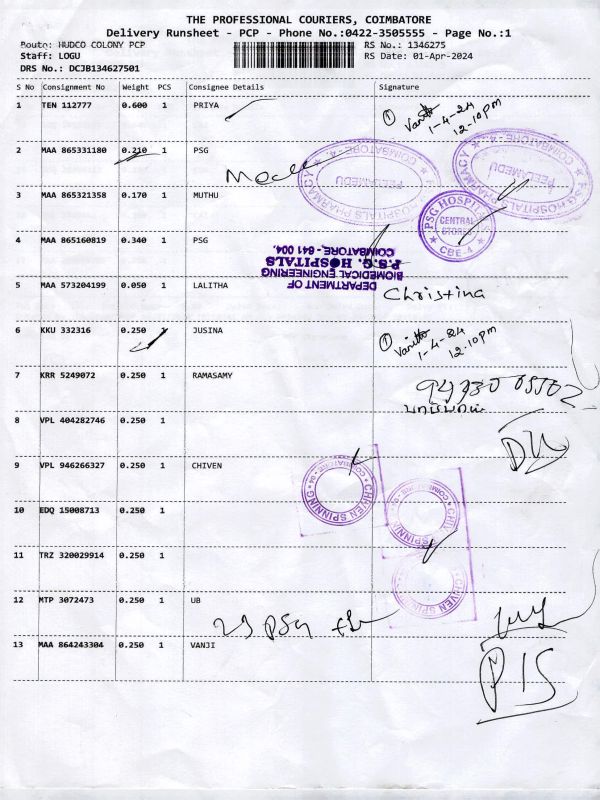 THE PROFESSIONAL COURIERS, COIMBATORE
Delivery Runsheet - PCP - Phone No.:0422-3505555 - Page No.:1
Route: HUDCO COLONY PCP RS No.: 1346275
Staff: LOGU RS Date: 01-Apr-2024
DRS No.: DCJB134627501
S No Consignment No Weight PCS Consignee Details Signature
1 TEN 112777 0.600 1 PRIYA
1-4-24
12-10pm
2 MAA 865331180 0.210 1 PSG
HOSPITALS PHARMACY COIMBATORE PEELAMEDU
PSG HOSPITALS PHARMACY COIMBATORE PEELAMEDU
3 MAA 865321358 0.170 1 MUTHU
PSG HOSPITALS CENTRAL STORES CBE-4
4 MAA 865160819 0.340 1 PSG
DEPARTMENT OF
BIOMEDICAL ENGINEERING
P.S.G. HOSPITALS
COIMBATORE, - 641 004.
5 MAA 573204199 0.050 1 LALITHA Christina
6 KKU 332316 0.250 1 JUSINA
1-4-24
12-10pm
7 KRR 5249072 0.250 1 RAMASAMY
8 VPL 404282746 0.250 1
9 VPL 946266327 0.250 1 CHIVEN
CHIVEN SPINNING
CHIVEN SPINNING
10 EDQ 15008713 0.250 1
11 TRZ 320029914 0.250 1
CHIVEN SPINNING
12 MTP 3072473 0.250 1 UB
13 MAA 864243304 0.250 1 VANJI